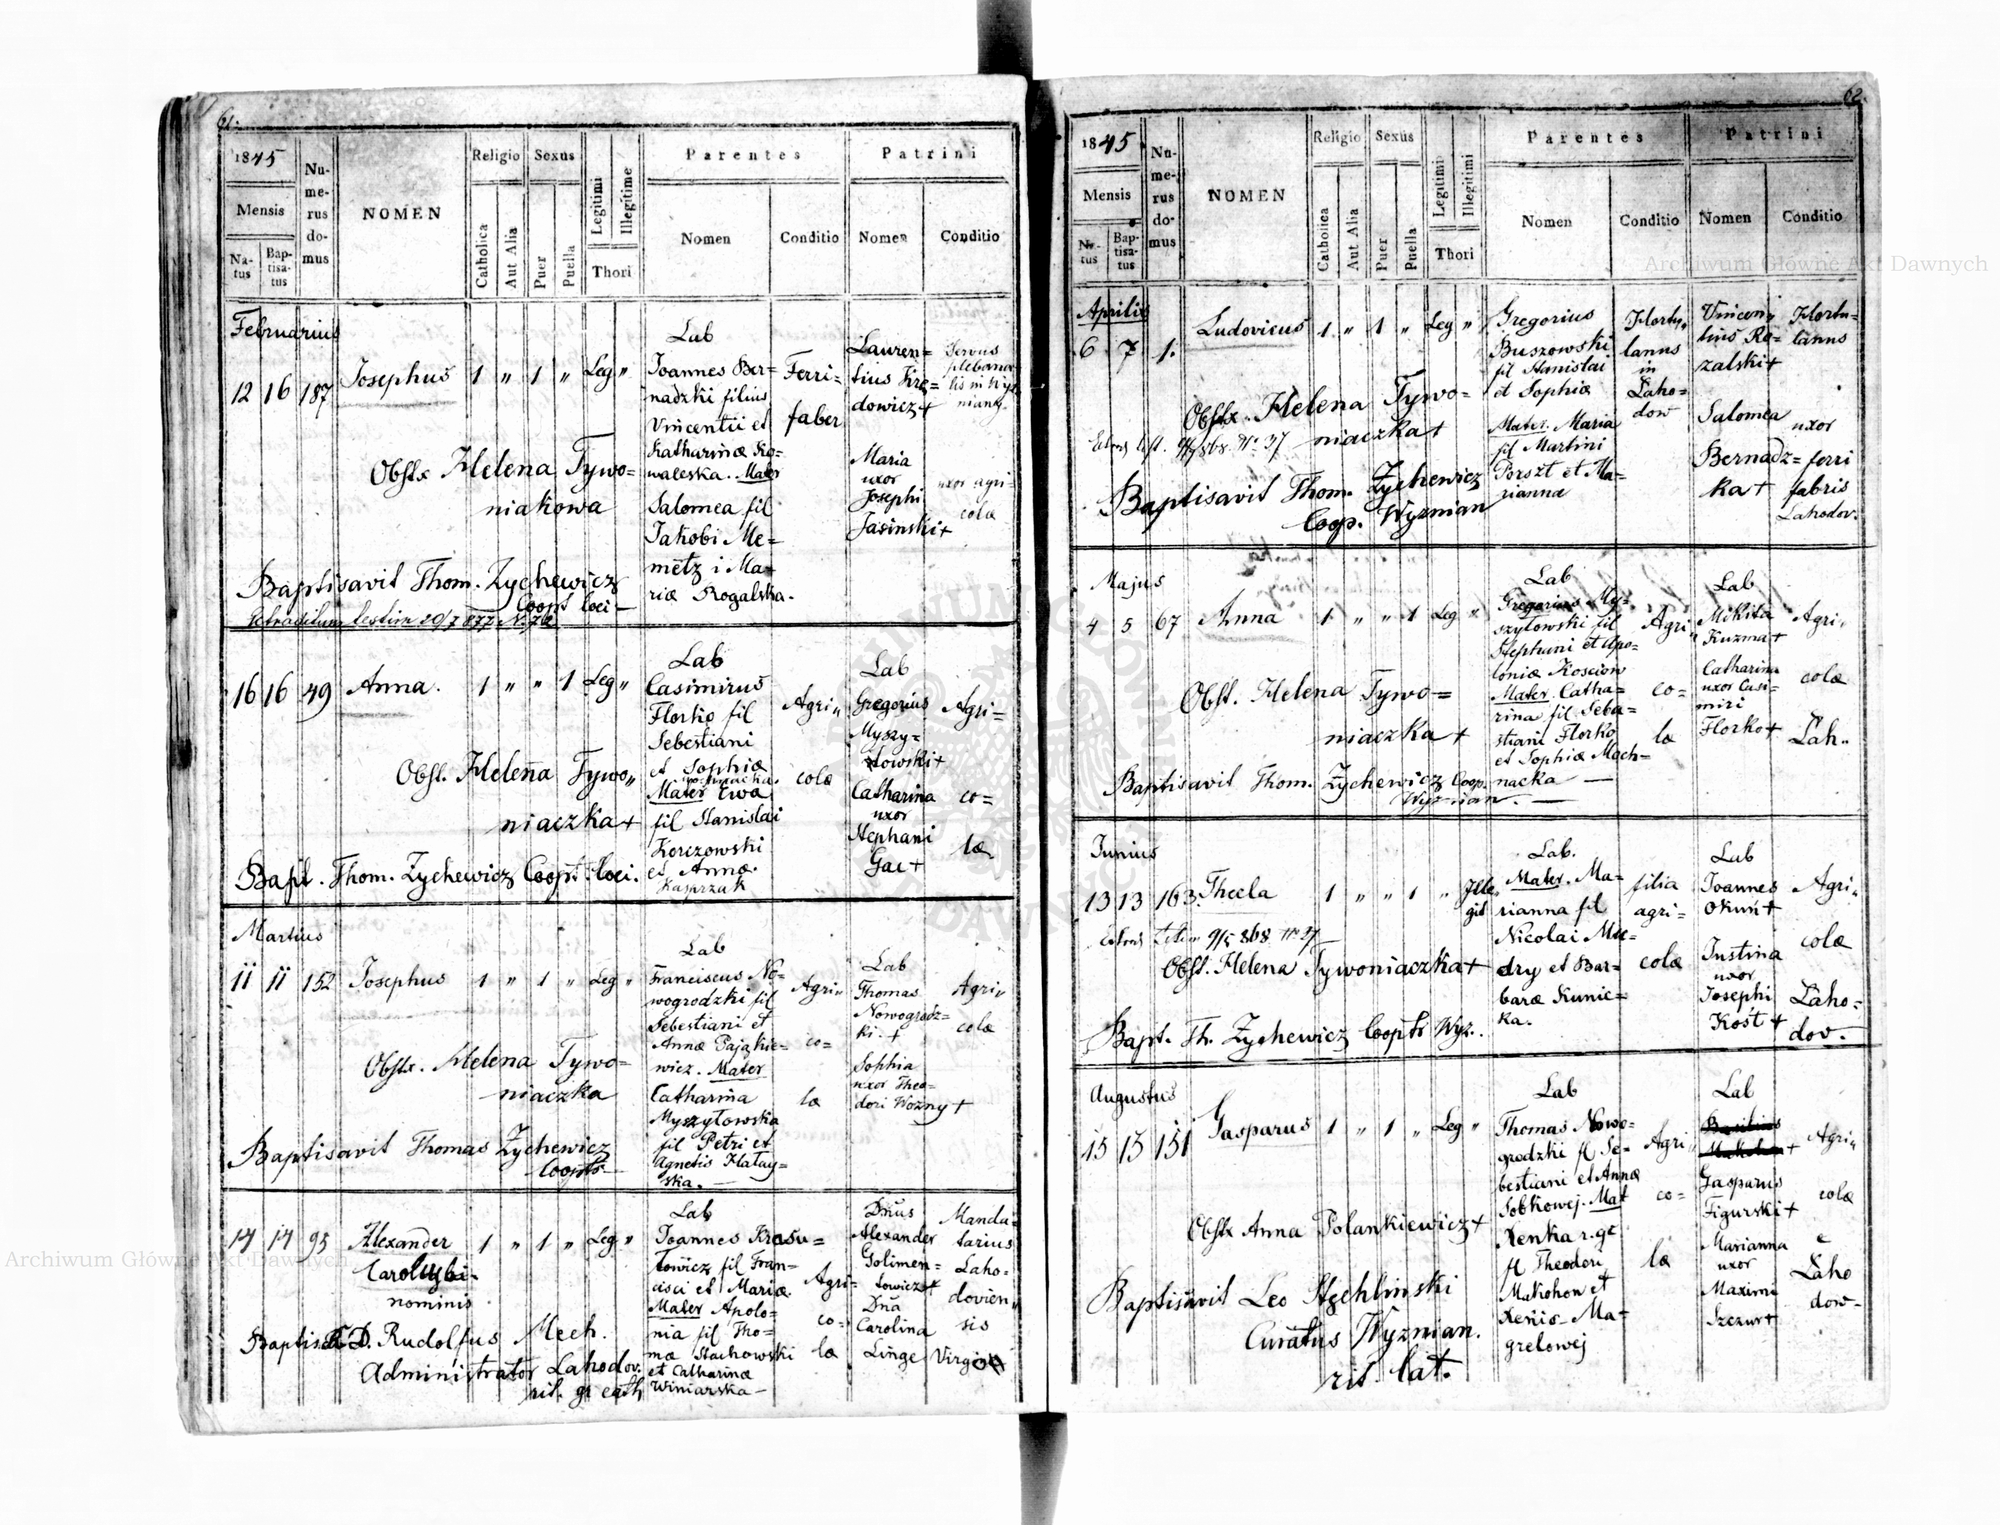 61.
1845
Mensis
Natus
Baptisatus
Numerus domus
NOMEN
Religio
Catholica
Aut Alia
Sexus
Puer
Puella
Legitimi
Illegitime
Thori
Parentes
Nomen
Conditio
Patrini
Nomen
Conditio
Februarius
12 16 187 Josephus 1 " 1 " Leg "
Lab
Joannes Ber=
nadzki filius
Vincentii et
Katharinæ Ko=
waleska. Mater
Salomea fil
Jakobi Me=
metz i Ma=
riæ Rogalska.
Ferri=
faber
Lauren=
tius Fre=
dowicz+
Maria
uxor
Josephi
Jasinski+
Servus
plebana
lis in Wyz
niany
uxor agri=
colæ
Obstx Helena Tywo=
niakowa
Baptisavit Thom. Zychewicz
Coopt loci
16 16 49 Anna. 1 " " 1 Leg "
Lab
Casimirus
Florko fil
Sebestiani
et Sophiæ
Mater Ewa
fil Stanislai
Korczowski
et Annæ
Kasprzak
Agri"
colæ
Lab
Gregorius
Myszy=
towski+
Catharina
uxor
Stephani
Gac+
Agri=
co=
læ
Obst. Helena Tywo"
niaczka+
Bapt. Thom. Zychewicz Coopt. loci.
Martius
11 11 152 Josephus 1 " 1 " Leg "
Lab
Franciscus No=
wogrodzki fil
Sebestiani et
Annæ Pająkie=
wicz. Mater
Catharina
Myszytowska
fil Petri et
Agnetis Hałay=
ska.
Agri"
co=
læ
Lab
Thomas
Nowogrodz=
ki. +
Sophia
uxor Theo=
dori Wozny+
Agri"
colæ
Obstx. Helena Tywo=
niaczka
Baptisavit Thomas Zychewicz
Coopts
14 14 95 Alexander 1 " 1 " Leg "
Carolus bi=
nominis
Lab
Joannes Krasu=
towicz fil Fran=
cisci et Mariæ
Mater Apolo=
nia fil Tho=
mæ Stachowski
et Catharinæ
Winiarska
Agri=
co=
læ
Dnus
Alexander
Golimen=
towicz+
Dna
Carolina
Linge
Manda=
tarius
Laho=
dovien"
sis
Virgo
Baptis. D. Rudolfus Mech.
Administrator Lahodov.
rit. gr cath
62.
1845
Mensis
Natus
Baptisatus
Numerus domus
NOMEN
Religio
Catholica
Aut Alia
Sexus
Puer
Puella
Legitimi
Illegitimi
Thori
Parentes
Nomen
Conditio
Patrini
Nomen
Conditio
Aprilis
6 7 1. Ludovicus 1 " 1 " Leg "
Gregorius
Buszowski
fil Stanislai
et Sophiæ
Mater. Maria
fil Martini
Porszt et Ma=
rianna
Hortu"
lanus
in
Laho=
dow
Vincen"
tius Ro=
zalski+
Salomea
Bernadz=
ka+
Hortu=
lanus
uxor
ferri
fabris
Lahodov.
Obstx. Helena Tywo=
niaczka+
Baptisavit Thom. Zychewicz
Coop. Wyznian
Majus
4 5 67 Anna 1 " " 1 Leg "
Lab
Gregorius My=
szytowski fil
Stephani et Apo=
loniæ Kosciow
Mater. Catha=
rina fil Seba=
stiani Florko
et Sophiæ Mach=
nacka
Agri"
co=
læ
Lab
Mikita
Kuzma+
Catharina
uxor Casi=
miri
Florko+
Agri"
colæ
Lah..
Obst. Helena Tywo=
niaczka+
Baptisavit Thom. Zychewicz Coop.
Wyznian.
Junius
13 13 163. Thecla 1 " " 1 " Ille
git
Lab.
Mater. Ma=
rianna fil
Nicolai Mu=
dry et Bar=
baræ Kunic=
ka.
filia
agri=
colæ
Lab
Joannes
Okuń+
Justina
uxor
Josephi
Kost+
Agri"
colæ
Laho=
dov.
Obst. Helena Tywoniaczka+
Bapt. Th. Zychewicz Coopts Wyz..
Augustus
15 15 151 Gasparus 1 " 1 " Leg "
Lab
Thomas Nowo=
grodzki fl Se=
bestiani et Annæ
Sobkowej. Mat
Xenka r. gr
fl Theodori
Makohon et
Xenis Ma=
grelowej
Agri"
co=
læ
Lab
Gasparus
Figurski+
Marianna
uxor
Maximi
Szczur+
Agri"
colæ
e
Laho
dow-
Obstx Anna Polankiewicz+
Baptisavit Leo Stechlinski
Curatus Wyznian.
rit. lat.
Archiwum Główne Akt Dawnych
Archiwum Główne Akt Dawnych